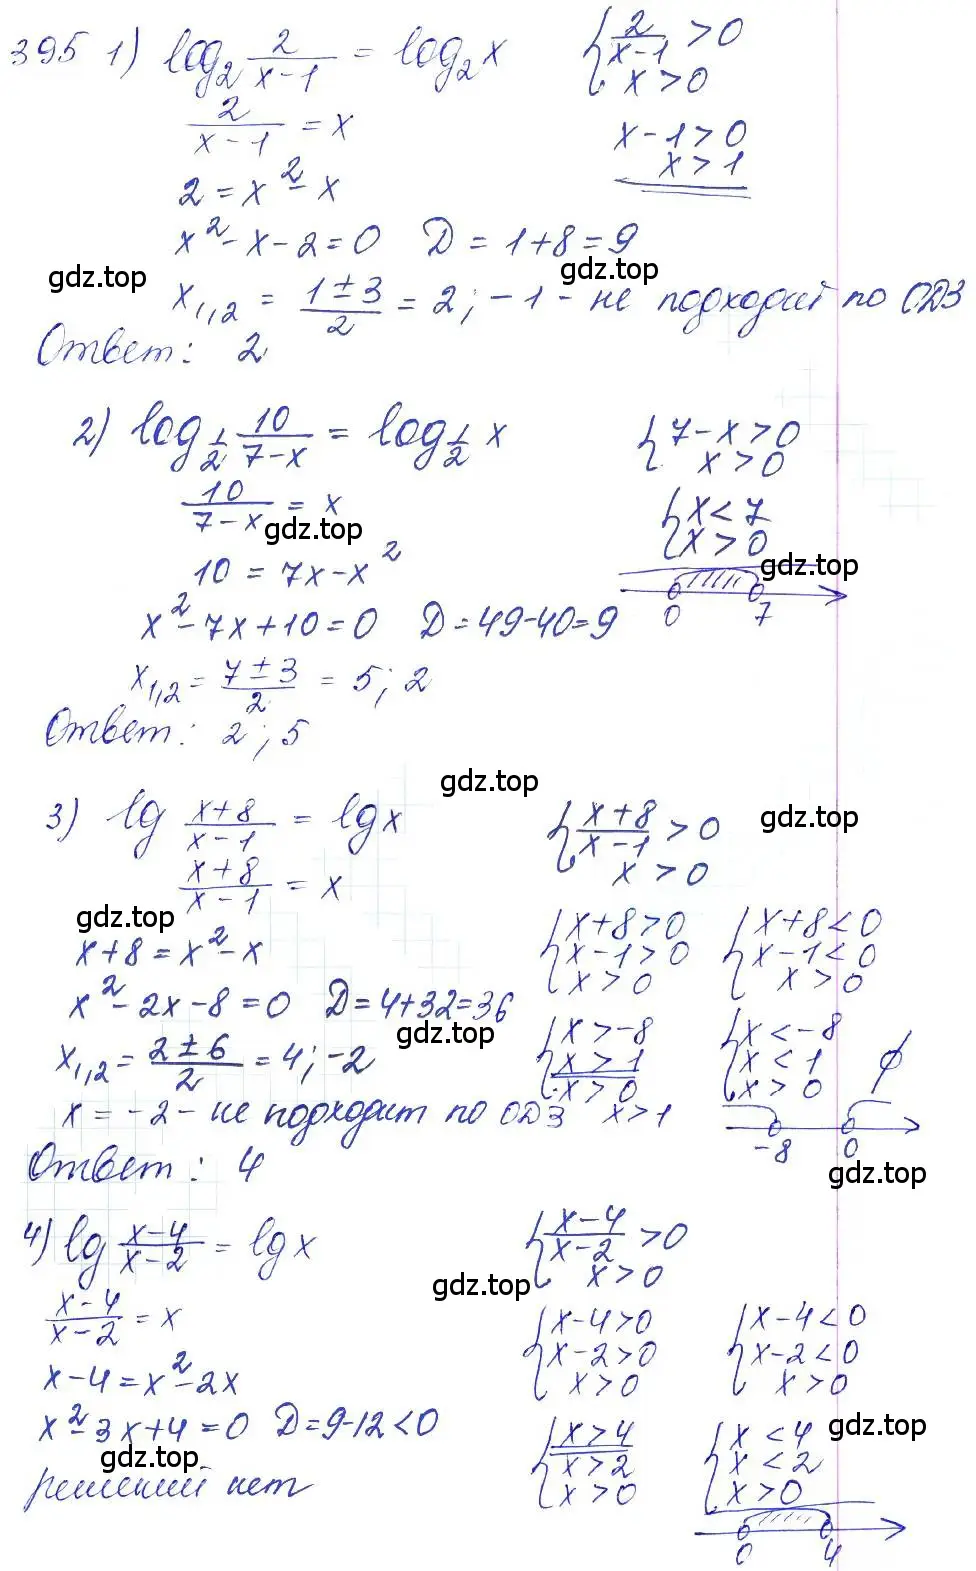 395 1) log₂ 2/(x-1) = log₂ x { 2/(x-1) > 0
x > 0
2/(x-1) = x x-1>0
x>1
2 = x² - x
x² - x - 2 = 0 D = 1+8 = 9
gdz.top gdz.top
x₁,₂ = (1±3)/2 = 2; -1 - не подходит по ОДЗ
Ответ: 2
2) log_{1/2} 10/(7-x) = log_{1/2} x { 7-x>0
x>0
10/(7-x) = x { x<7
x>0
gdz.top
10 = 7x - x² gdz.top
0 7
x² - 7x + 10 = 0 D = 49-40=9
x₁,₂ = (7±3)/2 = 5; 2
Ответ: 2; 5
gdz.top
3) lg (x+8)/(x-1) = lg x { (x+8)/(x-1) > 0
x > 0
gdz.top
(x+8)/(x-1) = x
gdz.top
x+8 = x² - x { x+8>0 { x+8<0
x-1>0 x-1<0
x>0 x>0
x² - 2x - 8 = 0 D=4+32=36
gdz.top
x₁,₂ = (2±6)/2 = 4; -2 { x>-8 { x<-8
x>1 x<1 ∅
x>0 x>0
x = -2 - не подходит по ОДЗ x>1
-8 0
Ответ: 4
gdz.top
4) lg (x-4)/(x-2) = lg x { (x-4)/(x-2) > 0
x > 0
gdz.top
(x-4)/(x-2) = x { x-4>0 { x-4<0
x-2>0 x-2<0
x>0 x>0
x-4 = x² - 2x
x² - 3x + 4 = 0 D = 9-12<0
gdz.top gdz.top
решений нет { x>4 { x<4
x>2 x<2
x>0 x>0
0 4